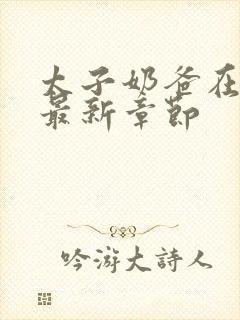 太子奶爸在
最新章節
吟游大詩人